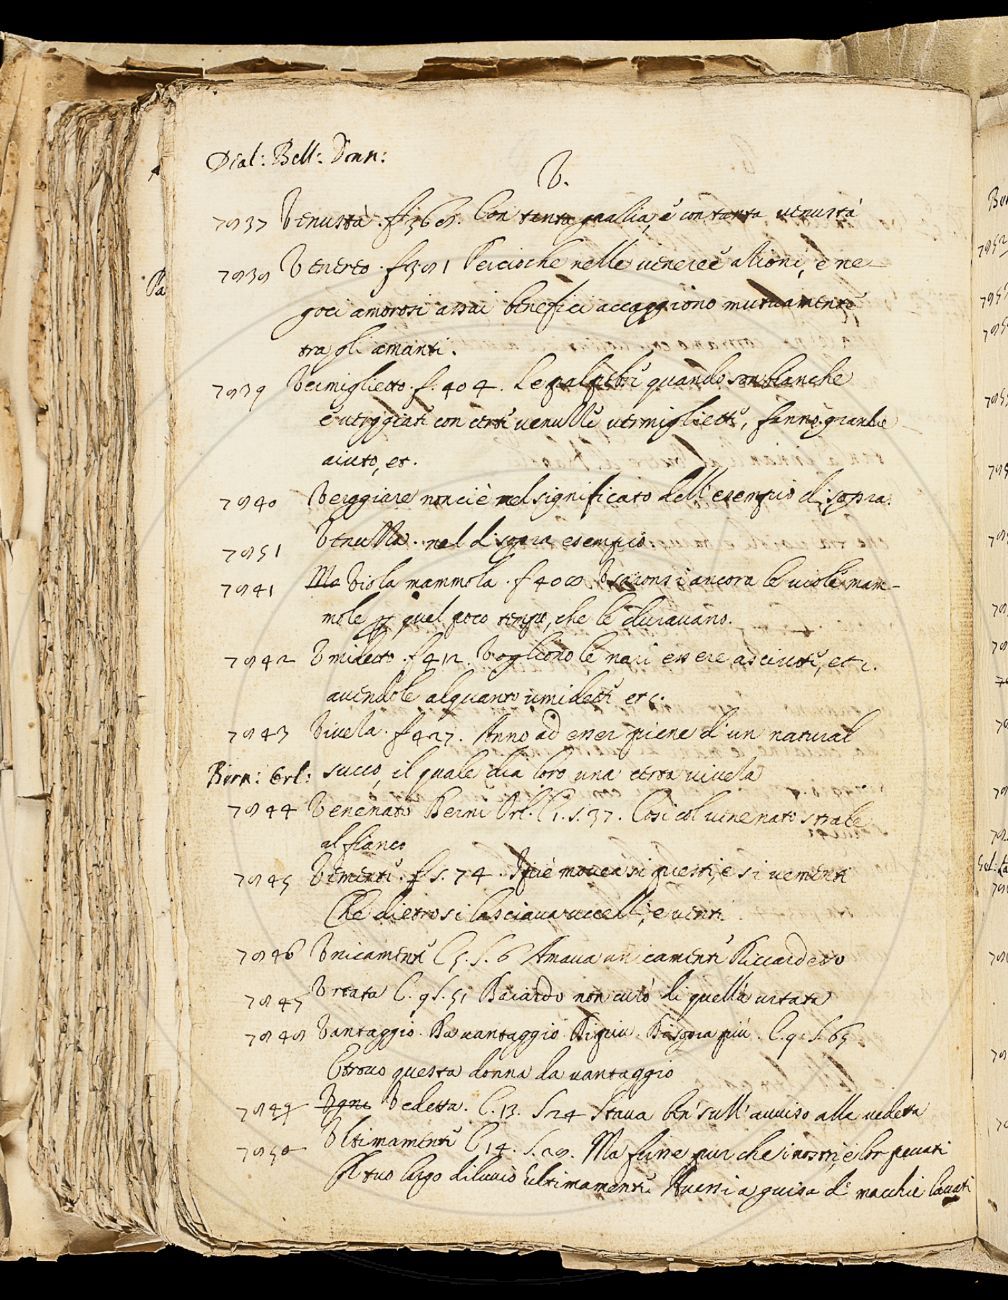 Dial: Bell: Donn:
V.
7937 Venustà. f. 369. Con tanta grazia, e con tanta venustà
7938 Venereo. f. 381 Percioche nelle veneree attioni, e ne-
goci amorosi assai beneficj accaggiono mutuamente
tra gli amanti.
7939 Vermiglietto. f. 404. Le palpebre quando son bianche
e verggiate con certe venulle vermigliette, fanno grande
aiuto, et.
7940 Verggiare non ci è nel significato dell' esempio di sopra.
7951 Venulla. nel di sopra esempio.
7941 Ma Viola mammola. f. 408 Usarono ancora le viole mam-
mole quel poco tempo, che le duravano.
7942 Umidetto. f. 412. Vogliono le nari essere asciutte, etc.
avendole alquanto umidette etc.
7943 Vivela. f. 427. Anno ad esser piene d'un natural
Bern: Orl: succo, il quale dia loro una certa vivela
7944 Venenato Berni Orl. C. 1. s. 37. Così col venenato strale
al fianco
7945 Vementi. f. s. 74. mover si questi, e si vementi
Che dietro si lasciava uccelli, e venti
7946 Unicamente C. 5. s. 6 Amava unicamente Ricciardetto
7947 Urtata C. 9 s. 51 Baiardo non curò di quella urtata
7948 Vantaggio. Da vantaggio Di più. Da sopra più. C. 9. s. 65
Etrovo questa donna da vantaggio
7949 Ogni Vedetta. C. 13. s. 24 Stava ben sull' avviso alla vedetta
7950 Ultimamente C. 14. s. 29. Ma furne pur che i nostri, e lor peccati
Il tuo largo diluvio ultimamente Avessi a guisa di macchie lavati
Pa